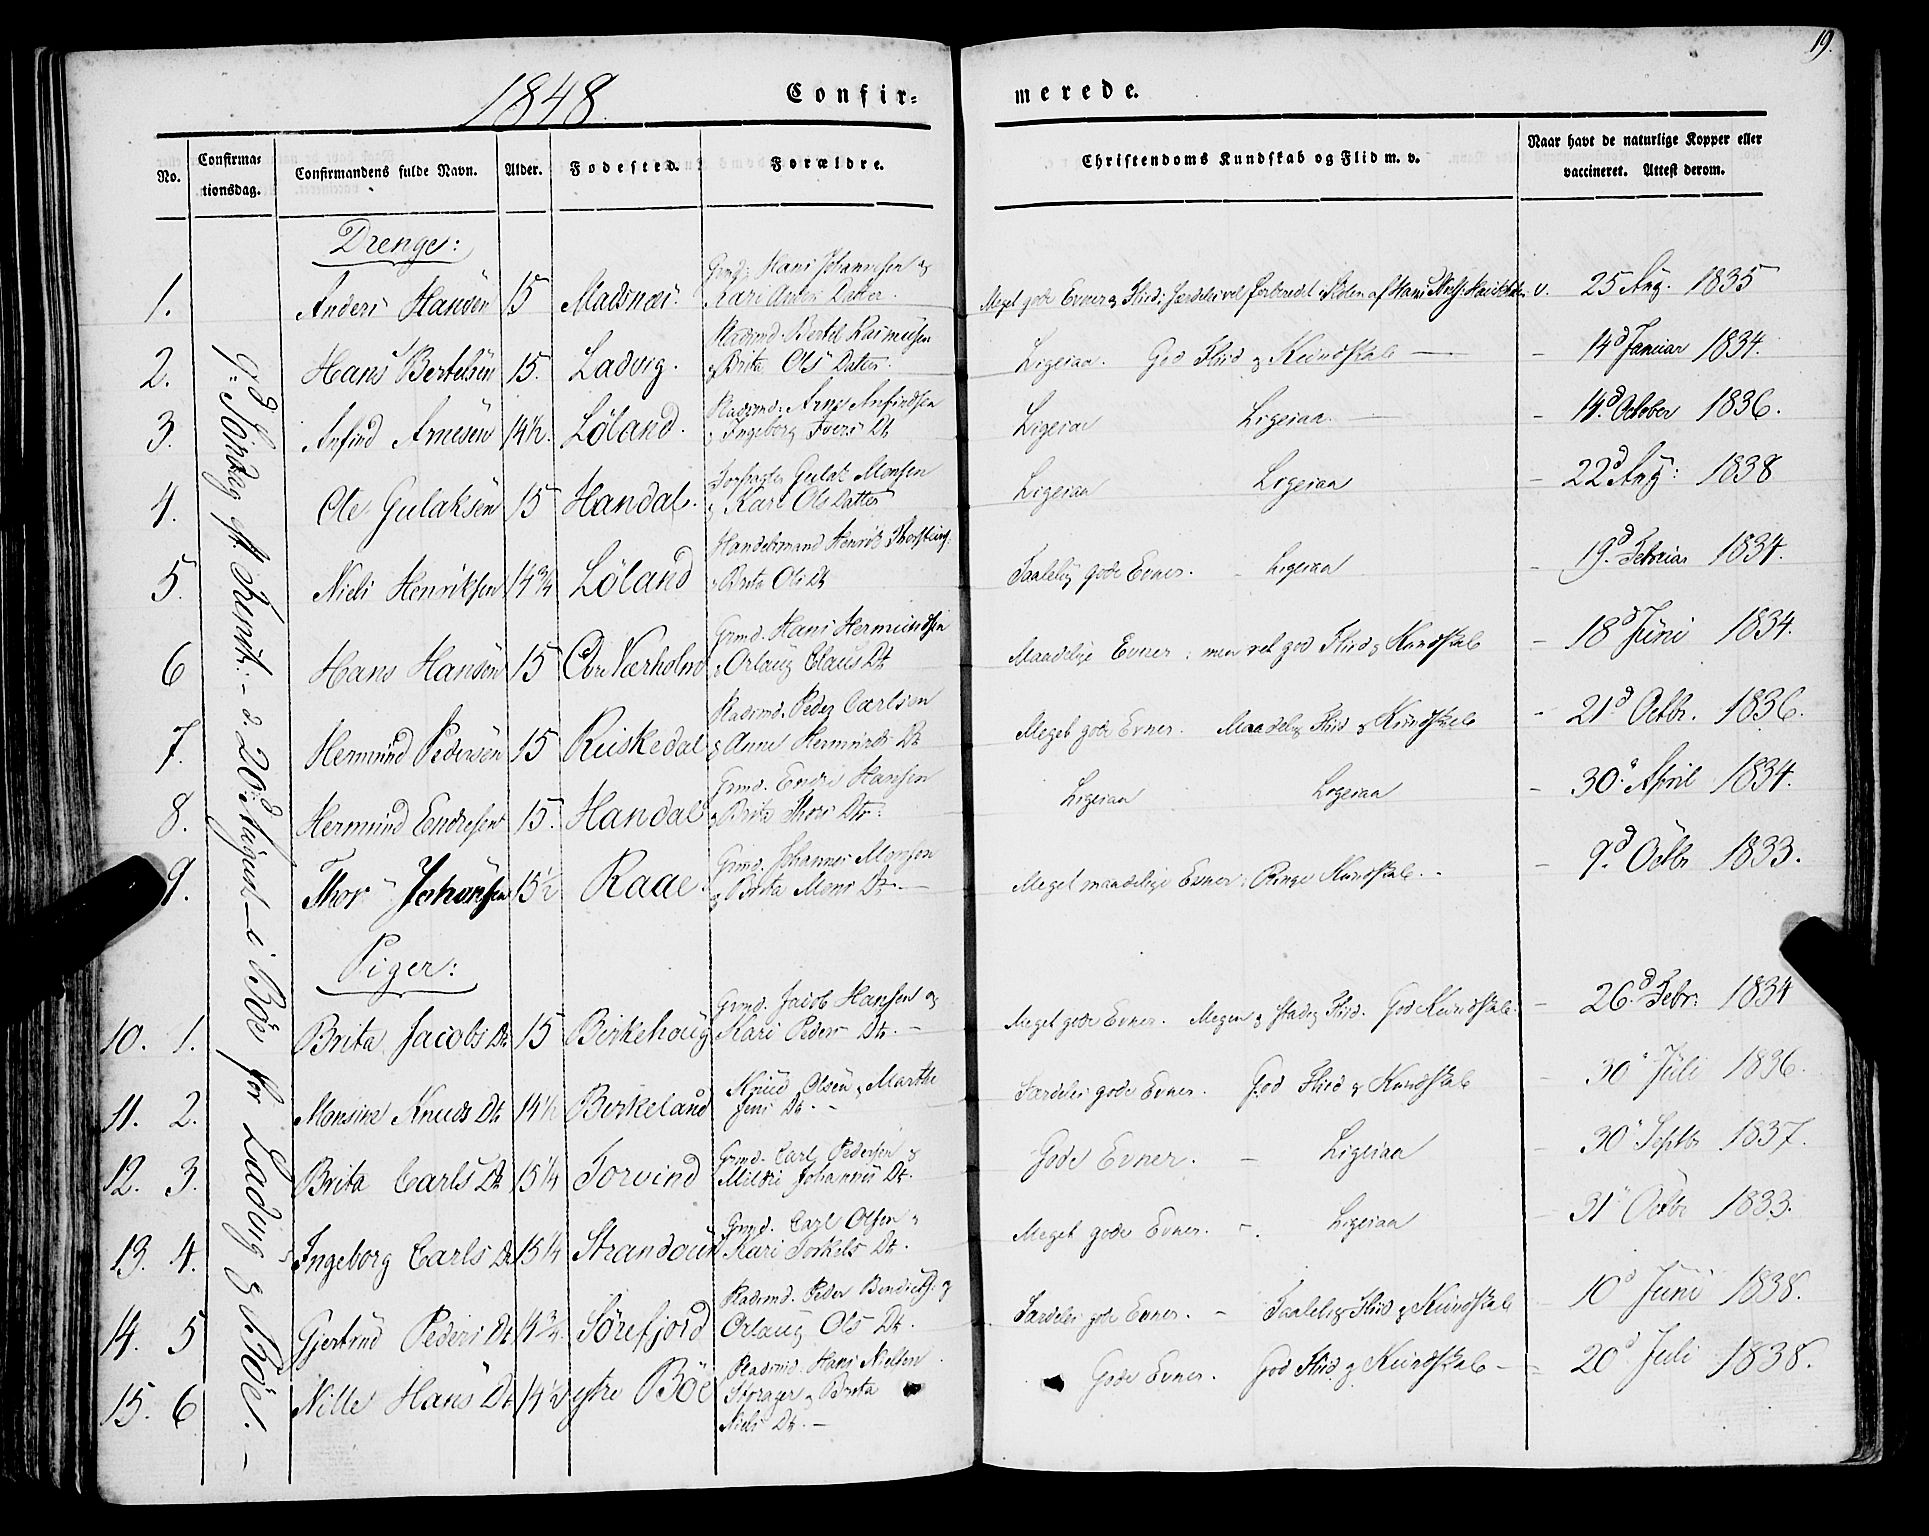 19.
1848. Confir= merede.
No. Confirma= tionsdag. Confirmandens fulde Navn. Alder. Fødested. Forældre. Christendoms Kundskab og Flid m. v. Naar havt de naturlige Kopper eller vaccineret. Attest derom.
Drenge:
Gmd: Hans Johannesen og
1. Anders Hansen 15 Madsnæs. Kari Anders Datter. Meget gode Evner og Flid; v. 25 Aug. 1835
Pladsmd. Bertel Rasmusen
2. Hans Bertelsen 15. Ladvig. og Brita Ols Datter. Ligesaa. God Flid og Kundskab — – 14d Januar 1834.
Pladsmd: Arne Anfindsen
3. Anfind Arnesen 14½. Løland. og Ingeborg Ivers Dt Ligesaa Ligesaa. – 14.d October 1836.
Gulak Monsen
4. Ole Gulaksen 15 Handal. og Kari Ols Datter Ligesaa Ligesaa – 22d Aug: 1838
Handelsmand Henrik
5. Niels Henriksen 14¾ Løland og Brita Ols Dt Taalelig gode Evner. – Ligesaa – 19.d Februar 1834.
Grmd. Hans Hermundsen
6 Hans Hansen 15 Værholm og Orlaug Claus Dt Maadelige Evner; men ret god Flid og Kundskab – 18d Juni 1834.
Pladsmd. Peder Carlsen
7. Hermund Pedersen 15 Ruskedal og Anne Hermunds Dt Meget gode Evner. Maadelig Flid og Kundskab – 21d Octbr. 1836.
Grmd. Endre Hansen
8. Hermund Endresen 15. Handal og Brita Thors Dtr. Ligesaa Ligesaa – 30.d April 1834.
Grmd. Johannes Monsen
9. Thor Johansen 15½ Raae. og Brita Mons Dt. – Meget maadelige Evner; Ringe Kundskab. – 9.d Octbr 1833.
9.d Søndag – d. 20.d August – i Bøe for Ladvig og Bøe. –
Piger:
Grmd. Jacob Hansen og
10. 1. Brita Jacobs Dt. 15 Birkehoug Kari Peders Dt. – Meget gode Evner. Megen og stadig Flid. God Kundskab. – 26.d Febr: 1834
Knud Olsen og Marthe
11. 2. Monsine Knuds Dt 14½ Birkeland Jens Dt. – Særdeles gode Evner. God Flid og Kundskab – 30d Juli 1836.
Grmd. Carl Pedersen og
12. 3. Brita Carls Dt 15¼ Torvind Johannes Dt. Gode Evner. – Ligesaa – 30d Septbr 1837.
Grmd. Carl Olsen og
13. 4. Ingeborg Carls Dt 15¼ Kari Torkels Dt. Meget gode Evner. – Ligesaa – 31d Octbr 1833.
Pladsmd. Peder og
14. 5 Gjertrud Peders Dt 14¾. Sørefjord Orlaug Ols Dt. Særdeles gode Evner. – Taalelig Flid og Kundskab – 10d Juni 1838.
Pladsmd. Hans Nielsen
15. 6 Nille Hans Dt 14½ ytre Bøe og Brita Gode Evner. God Flid og Kundskab – – 20d Juli 1838.
Niels Dt. –